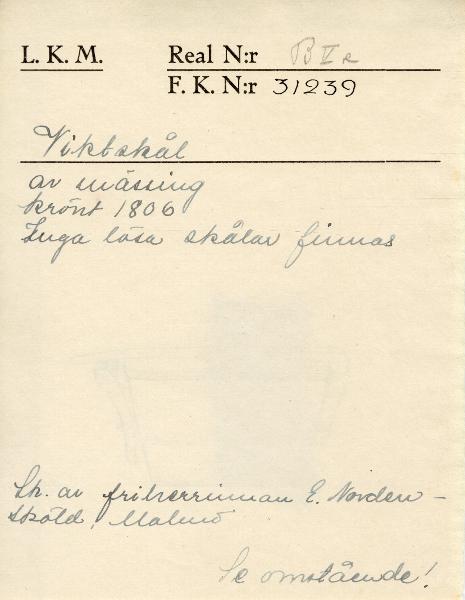 L. K. M. Real N:r B V e
F. K. N:r 31239
Viktskål
av mässing
krönt 1806
Inga lösa skålar finnas
Sk. av friherrinnan E. Norden-
sköld, Malmö
Se omstående!